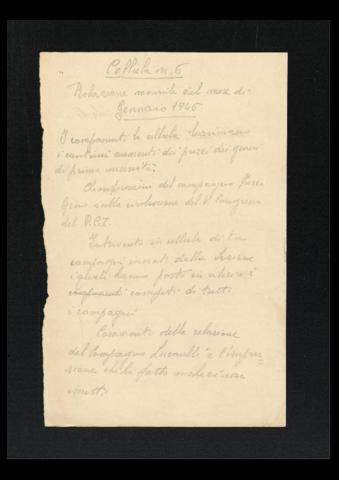 Cellula n. 6
Relazione mensile del mese di
Gennaio 1946
I componenti la cellula lamentano
i continui aumenti dei prezzi dei generi
di prima necessità.
del compagno
sulla risoluzione del V Congresso
del P.C.I.
Intervento in cellula di tre
compagni inviati dalla Sezione
i quali hanno posto in rilievo i
compiti di tutti
i compagni
Commenti della relazione
del Compagno e l'impres=
sione che ha fatto anche ai non